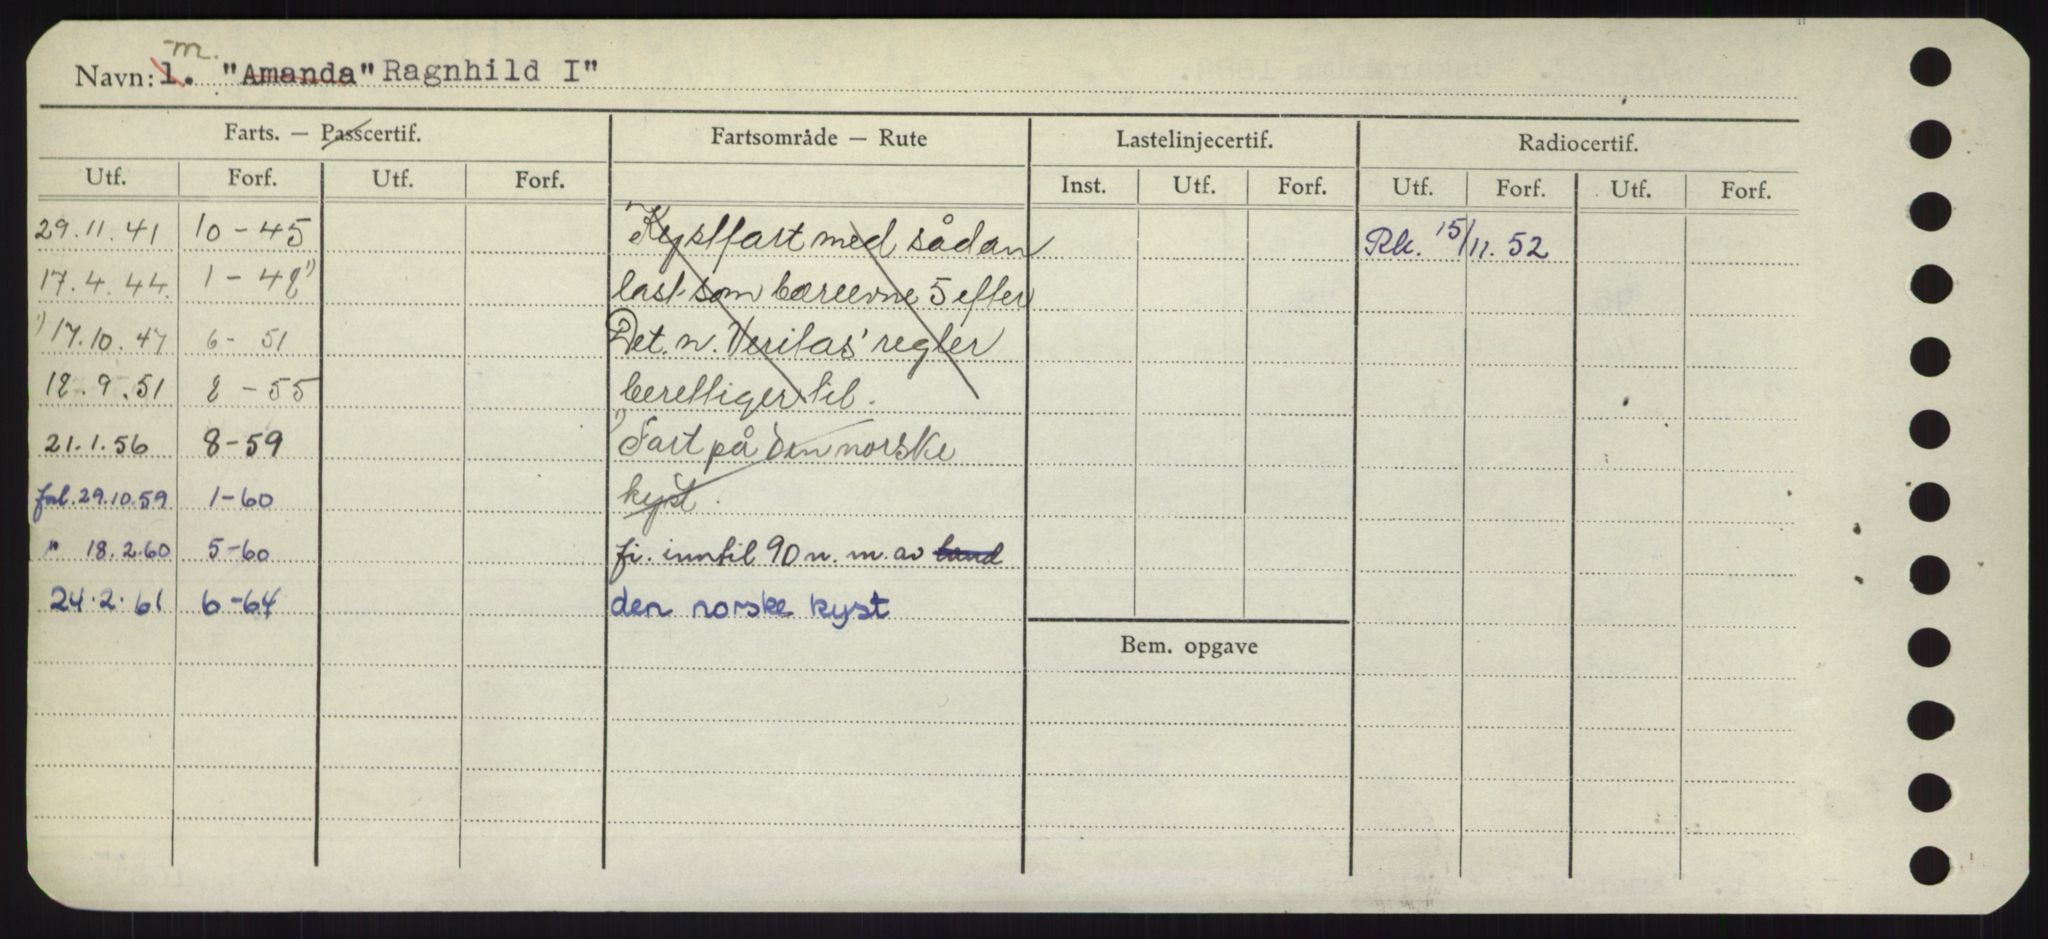 m.
Navn: 1. "Amanda" Ragnhild I"
Farts. — Passcertif. Fartsområde — Rute Lastelinjecertif. Radiocertif.
Utf. Forf. Utf. Forf. Inst. Utf. Forf. Utf. Forf. Utf. Forf.
29.11.41 10-45 Kystfart med sådan Rk. 15/11.52
17.4.44. 1-48 1) last som bæreevne 5 efter
1) 17.10.47 6-51 Det. n. Veritas' regler
18.9.51 8-55 berettiger til.
21.1.56 8-59 1) Fart på den norske
forl. 29.10.59 1-60 kyst.
" 18.2.60 5-60 fi. inntil 90 n.m. av land
24.2.61 6-64 den norske kyst
Bem. opgave